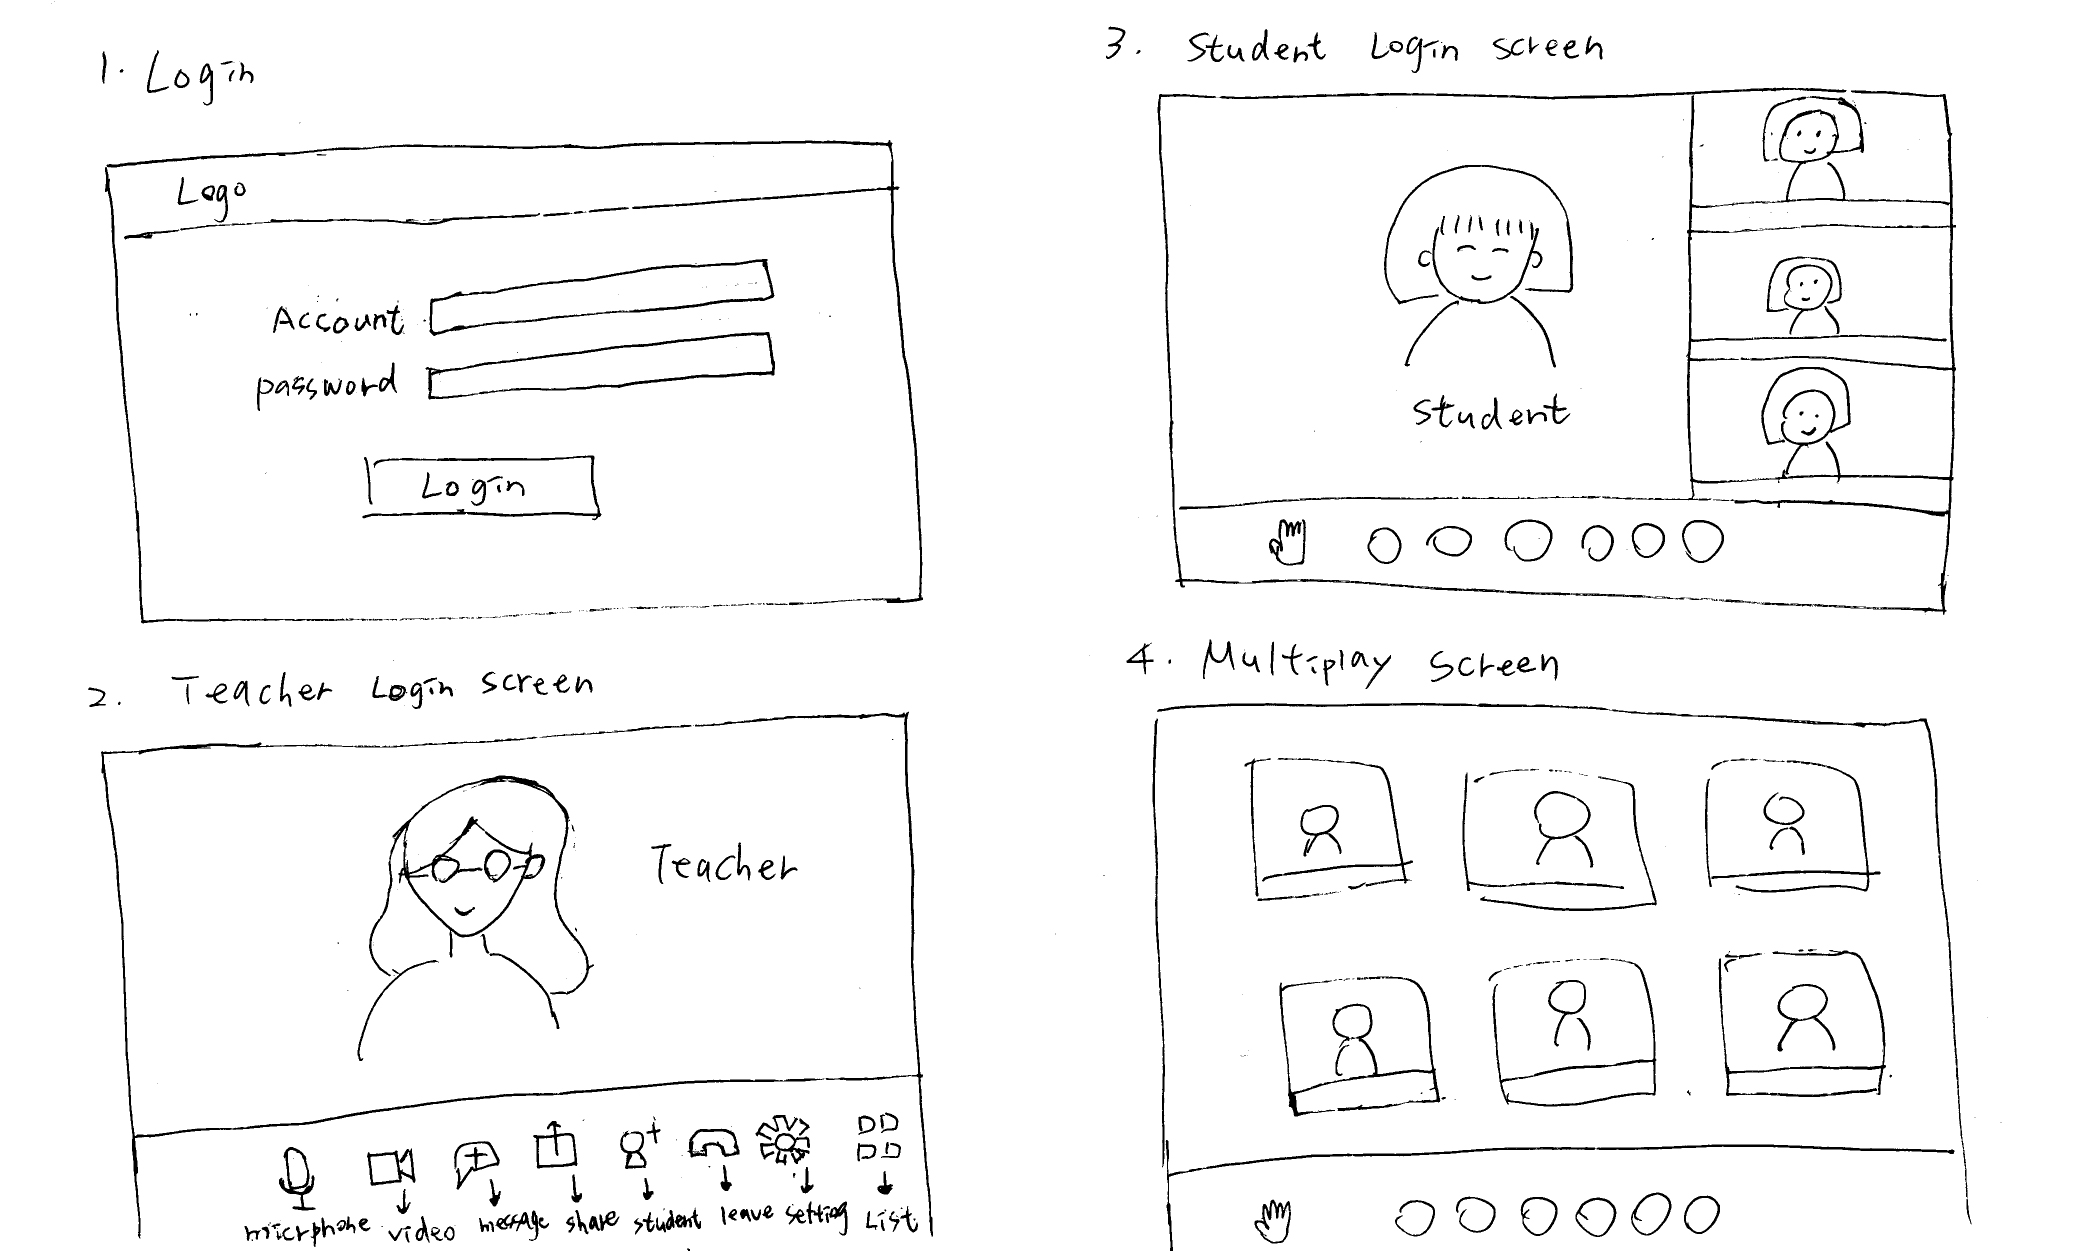 1. Login
Logo
Account
password
Login
2. Teacher Login screen
Teacher
micrphone video message share student leave setting List
3. Student Login screen
Student
4. Multiplay screen